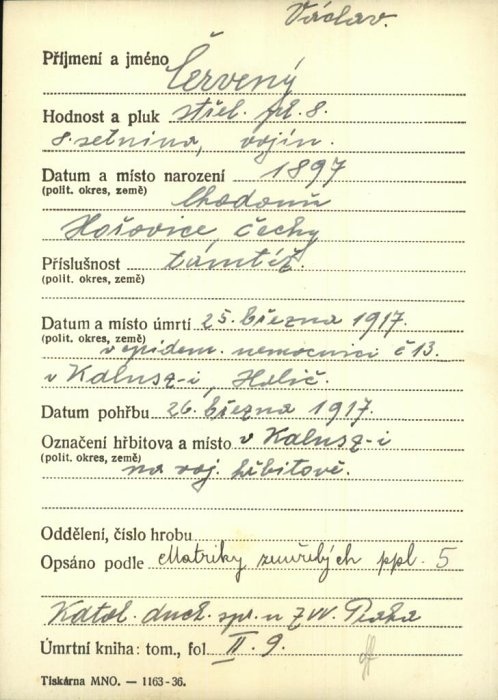 Václav.
Příjmení a jméno Červený
Hodnost a pluk střel. pl. 8.
8. setnina, vojín.
Datum a místo narození 1897
(polit. okres, země) Chodouň
Hořovice, Čechy
Příslušnost tamtéž.
(polit. okres, země)
Datum a místo úmrtí 25. března 1917.
(polit. okres, země) v epidem. nemocnici č 13.
v Kalusz-i, Halič.
Datum pohřbu 26. března 1917.
Označení hřbitova a místo v Kalusz-i
(polit. okres, země) na voj. hřbitově.
Oddělení, číslo hrobu
Opsáno podle Matriky zemřelých ppl. 5
Katol. duch. spr. u ZVV. Praha
Úmrtní kniha: tom., fol. II. 9.
Tiskárna MNO. — 1163-36.